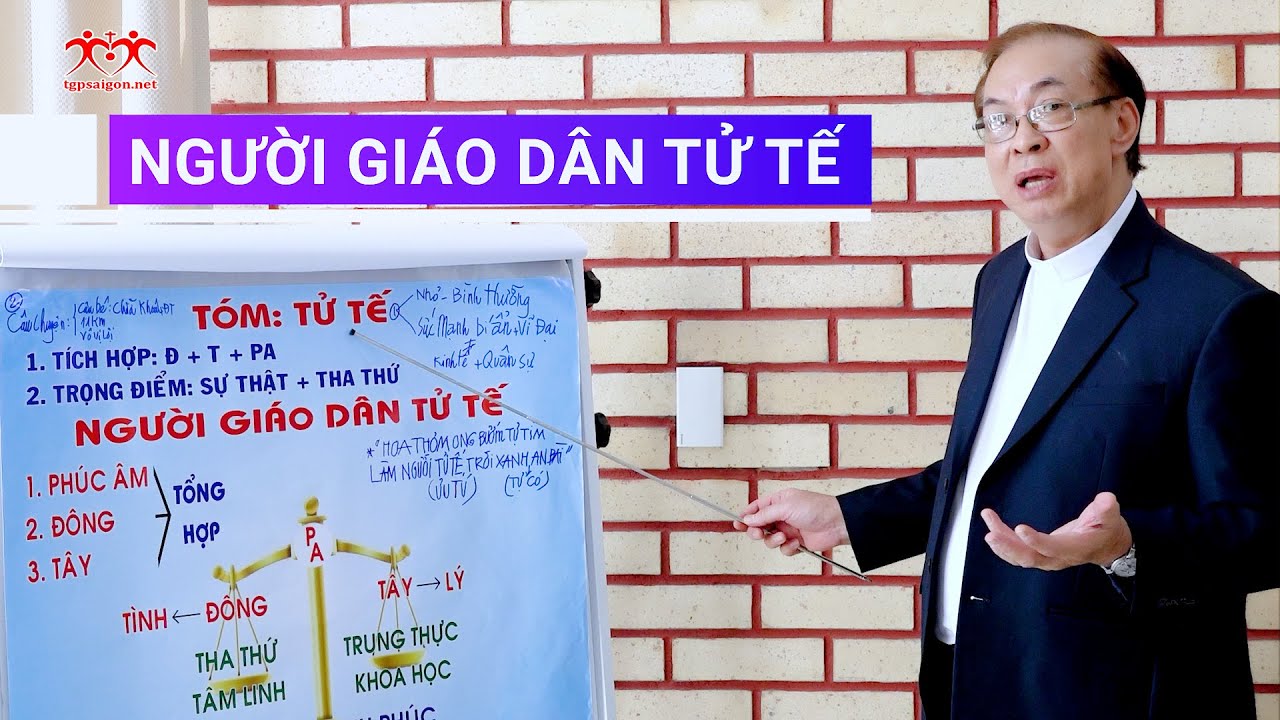 tgpsaigon.net
NGƯỜI GIÁO DÂN TỬ TẾ
Câu chuyện:
11km
TÓM: TỬ TẾ
Nhỏ - Bình thường
Sức Mạnh bí ẩn + Vĩ Đại
Kinh tế + Quân sự
1. TÍCH HỢP: Đ + T + PA
2. TRỌNG ĐIỂM: SỰ THẬT + THA THỨ
NGƯỜI GIÁO DÂN TỬ TẾ
* "HOA THƠM ONG BƯỚM TỰ TÌM
LÀM NGƯỜI TỬ TẾ, TRỜI XANH AN BÀI"
(ƯU TƯ) (TỰ CÓ)
1. PHÚC ÂM
2. ĐÔNG
3. TÂY
TỔNG
HỢP
PA
TÌNH ← ĐÔNG
TÂY → LÝ
THA THỨ
TÂM LINH
TRUNG THỰC
KHOA HỌC
PHÚC